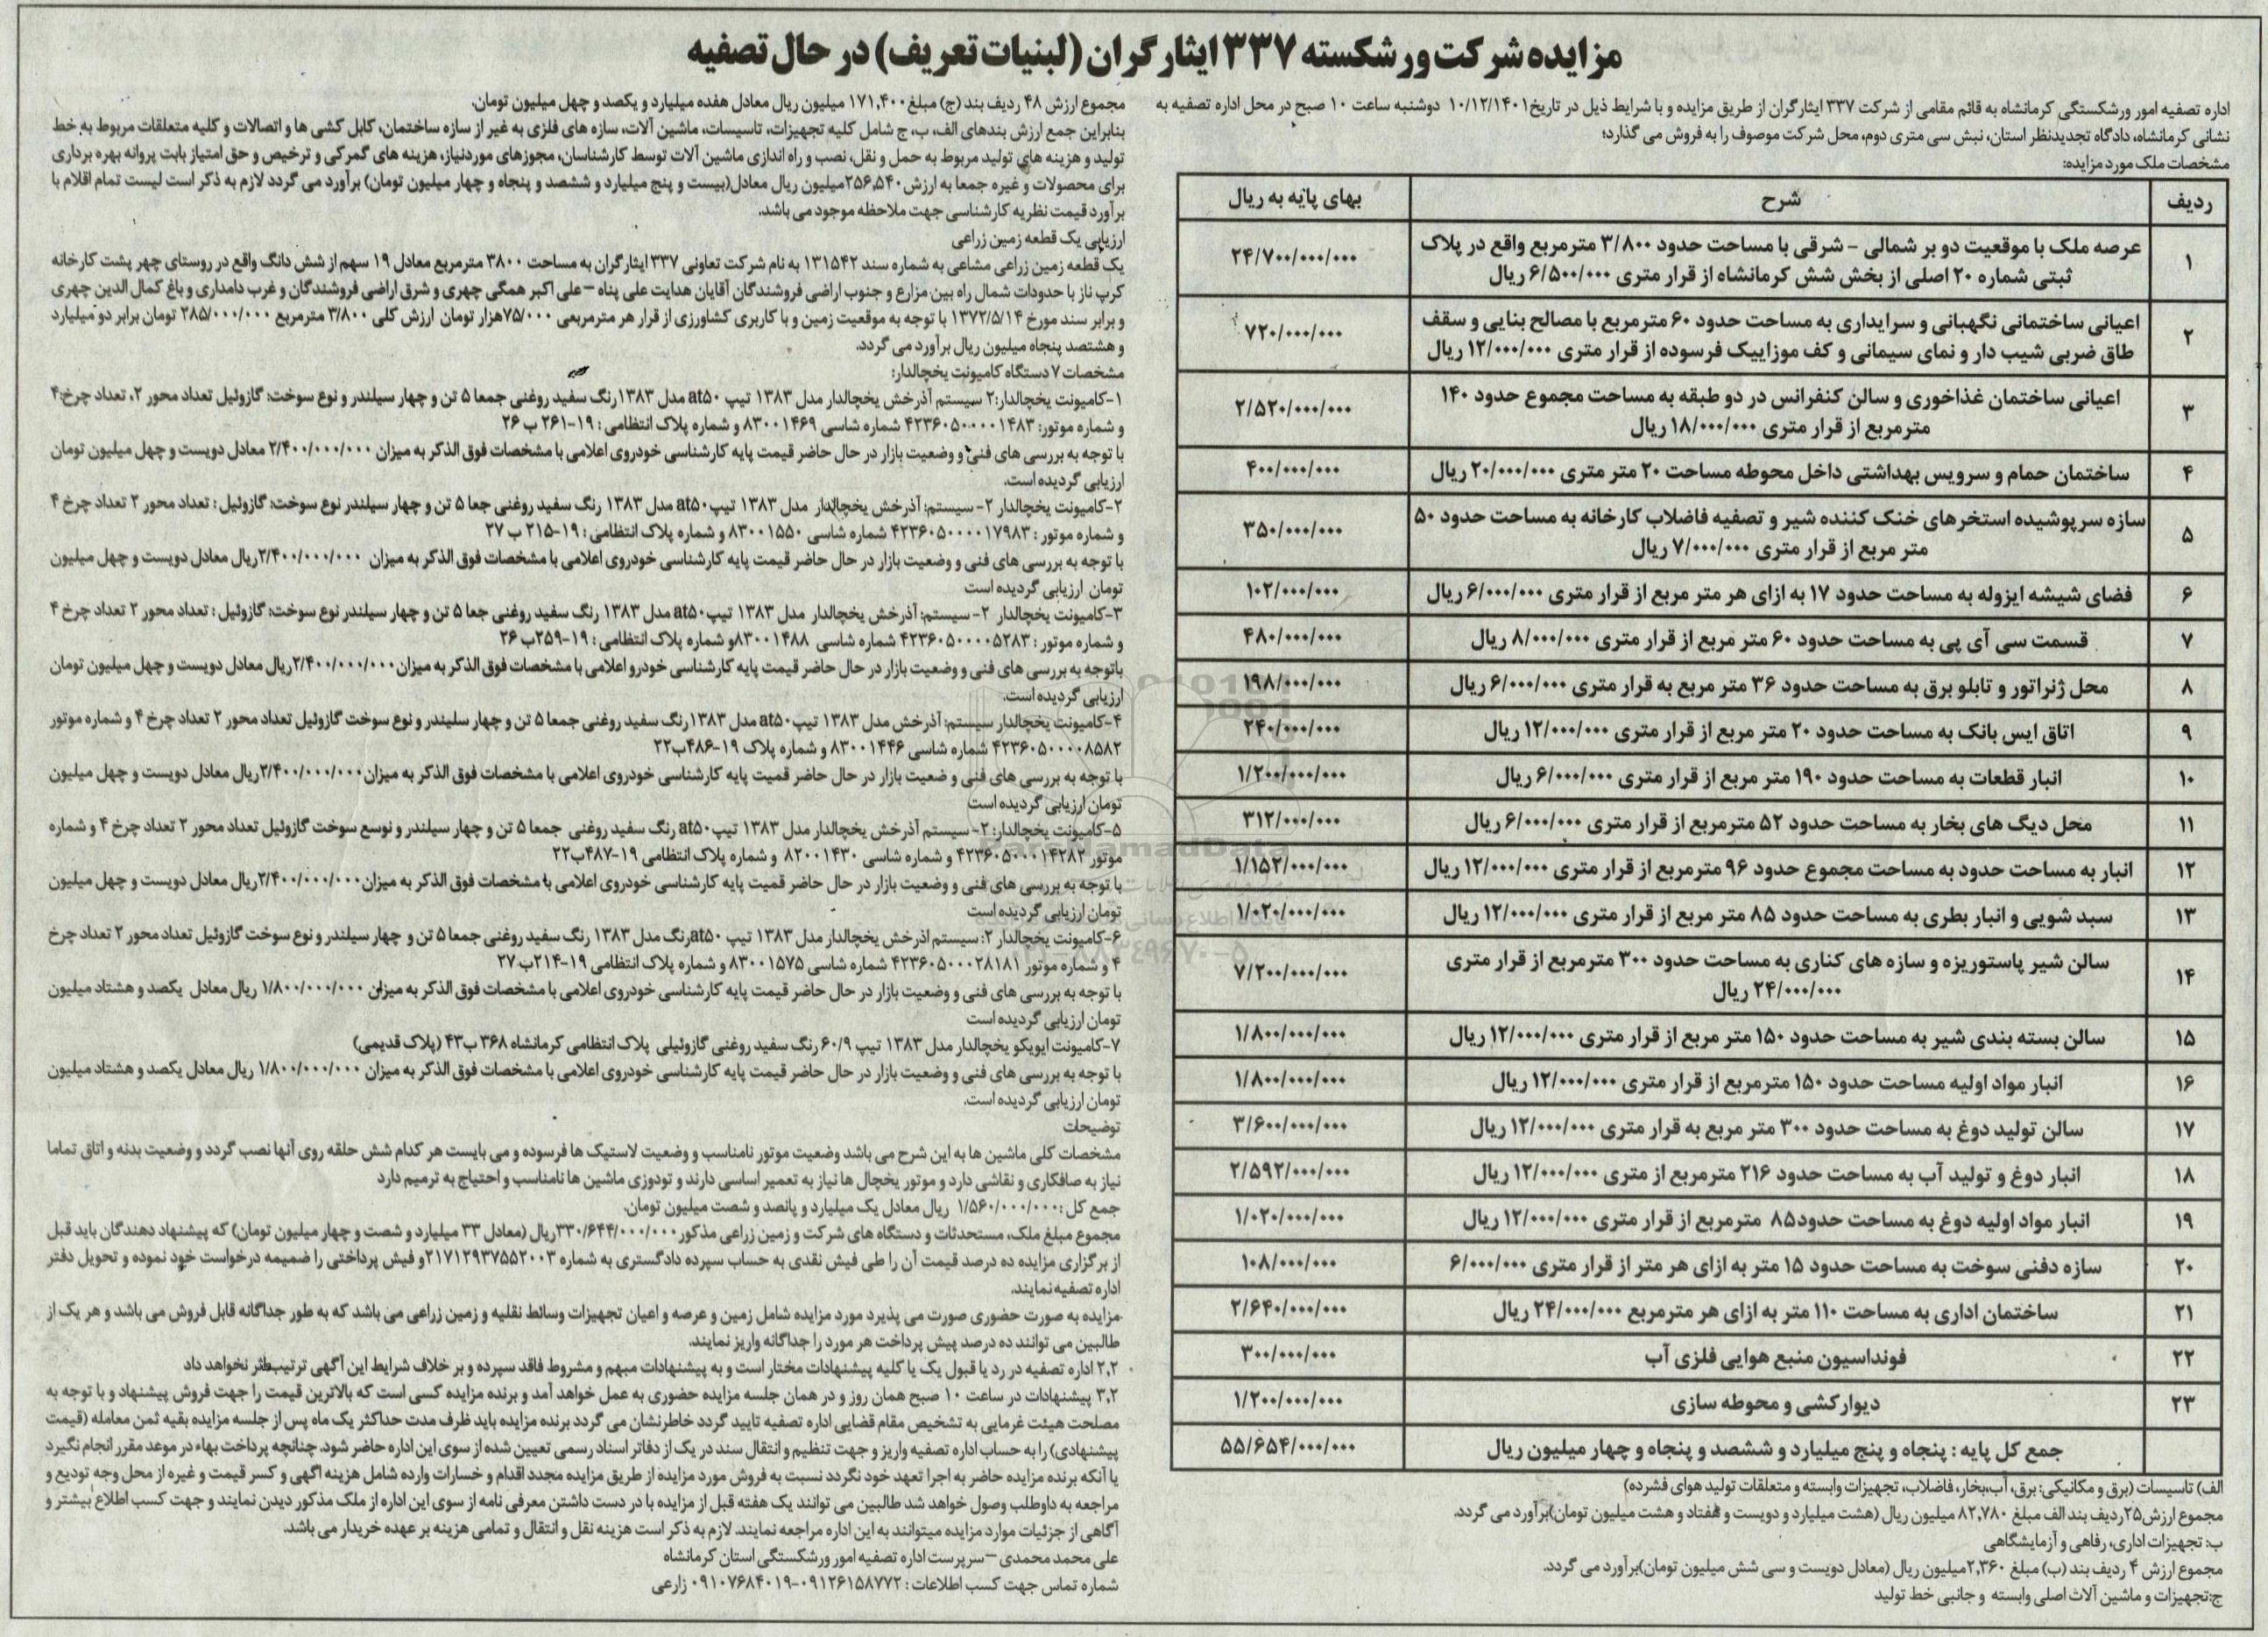 مزایده شرکت ورشکسته ۳۳۷ ایثارگران (لبنیات تعریف) در حال تصفیه
اداره تصفیه امور ورشکستگی کرمانشاه به قائم مقامی از شرکت ۳۳۷ ایثارگران از طریق مزایده و با شرایط ذیل در تاریخ۱۰/۱۲/۱۴۰۱ دوشنبه ساعت ۱۰ صبح در محل اداره تصفیه به
نشانی کرمانشاه، دادگاه تجدیدنظر استان، نبش سی متری دوم، محل شرکت موصوف را به فروش می گذارد؛
مشخصات ملک مورد مزایده:
ردیف شرح بهای پایه به ریال
۱ عرصه ملک با موقعیت دو بر شمالی - شرقی با مساحت حدود ۳/۸۰۰ مترمربع واقع در پلاک ۲۴/۷۰۰/۰۰۰/۰۰۰
ثبتی شماره ۲۰ اصلی از بخش شش کرمانشاه از قرار متری ۶/۵۰۰/۰۰۰ ریال
۲ اعیانی ساختمانی نگهبانی و سرایداری به مساحت حدود ۶۰ مترمربع با مصالح بنایی و سقف ۷۲۰/۰۰۰/۰۰۰
طاق ضربی شیب دار و نمای سیمانی و کف موزاییک فرسوده از قرار متری ۱۲/۰۰۰/۰۰۰ ریال
۳ اعیانی ساختمان غذاخوری و سالن کنفرانس در دو طبقه به مساحت مجموع حدود ۱۴۰ ۲/۵۲۰/۰۰۰/۰۰۰
مترمربع از قرار متری ۱۸/۰۰۰/۰۰۰ ریال
۴ ساختمان حمام و سرویس بهداشتی داخل محوطه مساحت ۲۰ متر متری ۲۰/۰۰۰/۰۰۰ ریال ۴۰۰/۰۰۰/۰۰۰
۵ سازه سرپوشیده استخرهای خنک کننده شیر و تصفیه فاضلاب کارخانه به مساحت حدود ۵۰ ۳۵۰/۰۰۰/۰۰۰
متر مربع از قرار متری ۷/۰۰۰/۰۰۰ ریال
۶ فضای شیشه ایزوله به مساحت حدود ۱۷ به ازای هر متر مربع از قرار متری ۶/۰۰۰/۰۰۰ ریال ۱۰۲/۰۰۰/۰۰۰
۷ قسمت سی آی پی به مساحت حدود ۶۰ متر مربع از قرار متری ۸/۰۰۰/۰۰۰ ریال ۴۸۰/۰۰۰/۰۰۰
۸ محل ژنراتور و تابلو برق به مساحت حدود ۳۶ متر مربع به قرار متری ۶/۰۰۰/۰۰۰ ریال ۱۹۸/۰۰۰/۰۰۰
۹ اتاق ایس بانک به مساحت حدود ۲۰ متر مربع از قرار متری ۱۲/۰۰۰/۰۰۰ ریال ۲۴۰/۰۰۰/۰۰۰
۱۰ انبار قطعات به مساحت حدود ۱۹۰ متر مربع از قرار متری ۶/۰۰۰/۰۰۰ ریال ۱/۲۰۰/۰۰۰/۰۰۰
۱۱ محل دیگ های بخار به مساحت حدود ۵۲ مترمربع از قرار متری ۶/۰۰۰/۰۰۰ ریال ۳۱۲/۰۰۰/۰۰۰
۱۲ انبار به مساحت حدود به مساحت مجموع حدود ۹۶ مترمربع از قرار متری ۱۲/۰۰۰/۰۰۰ ریال ۱/۱۵۲/۰۰۰/۰۰۰
۱۳ سبد شویی و انبار بطری به مساحت حدود ۸۵ متر مربع از قرار متری ۱۲/۰۰۰/۰۰۰ ریال ۱/۰۲۰/۰۰۰/۰۰۰
۱۴ سالن شیر پاستوریزه و سازه های کناری به مساحت حدود ۳۰۰ مترمربع از قرار متری ۷/۲۰۰/۰۰۰/۰۰۰
۲۴/۰۰۰/۰۰۰ ریال
۱۵ سالن بسته بندی شیر به مساحت حدود ۱۵۰ متر مربع از قرار متری ۱۲/۰۰۰/۰۰۰ ریال ۱/۸۰۰/۰۰۰/۰۰۰
۱۶ انبار مواد اولیه مساحت حدود ۱۵۰ مترمربع از قرار متری ۱۲/۰۰۰/۰۰۰ ریال ۱/۸۰۰/۰۰۰/۰۰۰
۱۷ سالن تولید دوغ به مساحت حدود ۳۰۰ متر مربع به قرار متری ۱۲/۰۰۰/۰۰۰ ریال ۳/۶۰۰/۰۰۰/۰۰۰
۱۸ انبار دوغ و تولید آب به مساحت حدود ۲۱۶ مترمربع از متری ۱۲/۰۰۰/۰۰۰ ریال ۲/۵۹۲/۰۰۰/۰۰۰
۱۹ انبار مواد اولیه دوغ به مساحت حدود۸۵ مترمربع از قرار متری ۱۲/۰۰۰/۰۰۰ ریال ۱/۰۲۰/۰۰۰/۰۰۰
۲۰ سازه دفنی سوخت به مساحت حدود ۱۵ متر به ازای هر متر از قرار متری ۶/۰۰۰/۰۰۰ ۱۰۸/۰۰۰/۰۰۰
۲۱ ساختمان اداری به مساحت ۱۱۰ متر به ازای هر مترمربع ۲۴/۰۰۰/۰۰۰ ریال ۲/۶۴۰/۰۰۰/۰۰۰
۲۲ فونداسیون منبع هوایی فلزی آب ۳۰۰/۰۰۰/۰۰۰
۲۳ دیوارکشی و محوطه سازی ۱/۲۰۰/۰۰۰/۰۰۰
جمع کل پایه : پنجاه و پنج میلیارد و ششصد و پنجاه و چهار میلیون ریال ۵۵/۶۵۴/۰۰۰/۰۰۰
الف) تاسیسات (برق و مکانیکی: برق، آب،بخار، فاضلاب، تجهیزات وابسته و متعلقات تولید هوای فشرده)
مجموع ارزش۲۵ردیف بند الف مبلغ ۸۲,۷۸۰ میلیون ریال (هشت میلیارد و دویست و هفتاد و هشت میلیون تومان)برآورد می گردد.
ب: تجهیزات اداری، رفاهی و آزمایشگاهی
مجموع ارزش ۴ ردیف بند (ب) مبلغ ۲,۳۶۰میلیون ریال (معادل دویست و سی شش میلیون تومان)برآورد می گردد.
ج:تجهیزات و ماشین آلات اصلی وابسته و جانبی خط تولید
مجموع ارزش ۴۸ ردیف بند (ج) مبلغ ۱۷۱,۴۰۰ میلیون ریال معادل هفده میلیارد و یکصد و چهل میلیون تومان.
بنابراین جمع ارزش بندهای الف، ب، ج شامل کلیه تجهیزات، تاسیسات، ماشین آلات، سازه های فلزی به غیر از سازه ساختمان، کابل کشی ها و اتصالات و کلیه متعلقات مربوط به خط
تولید و هزینه های تولید مربوط به حمل و نقل، نصب و راه اندازی ماشین آلات توسط کارشناسان، مجوزهای موردنیاز، هزینه های گمرکی و ترخیص و حق امتیاز بابت پروانه بهره برداری
برای محصولات و غیره جمعا به ارزش۲۵۶,۵۴۰میلیون ریال معادل(بیست و پنج میلیارد و ششصد و پنجاه و چهار میلیون تومان) برآورد می گردد لازم به ذکر است لیست تمام اقلام با
برآورد قیمت نظریه کارشناسی جهت ملاحظه موجود می باشد.
ارزیابی یک قطعه زمین زراعی
یک قطعه زمین زراعی مشاعی به شماره سند ۱۳۱۵۴۲ به نام شرکت تعاونی ۳۳۷ ایثارگران به مساحت ۳۸۰۰ مترمربع معادل ۱۹ سهم از شش دانگ واقع در روستای چهر پشت کارخانه
کرپ ناز با حدودات شمال راه بین مزارع و جنوب اراضی فروشندگان آقایان هدایت علی پناه –علی اکبر همگی چهری و شرق اراضی فروشندگان و غرب دامداری و باغ کمال الدین چهری
و برابر سند مورخ ۱۳۷۲/۵/۱۴ با توجه به موقعیت زمین و با کاربری کشاورزی از قرار هر مترمربعی ۷۵/۰۰۰هزار تومان ارزش کلی ۳/۸۰۰ مترمربع ۲۸۵/۰۰۰/۰۰۰ تومان برابر دو میلیارد
و هشتصد پنجاه میلیون ریال برآورد می گردد.
مشخصات ۷ دستگاه کامیونت یخچالدار:
۱-کامیونت یخچالدار:۲ سیستم آذرخش یخچالدار مدل ۱۳۸۳ تیپ at۵۰ مدل ۱۳۸۳رنگ سفید روغنی جمعا ۵ تن و چهار سیلندر و نوع سوخت: گازوئیل تعداد محور ۲، تعداد چرخ:۴
و شماره موتور: ۴۲۳۶۰۵۰۰۰۰۱۴۸۳ شماره شاسی ۸۳۰۰۱۴۶۹ و شماره پلاک انتظامی : ۱۹-۲۶۱ ب ۲۶
با توجه به بررسی های فنی و وضعیت بازار در حال حاضر قیمت پایه کارشناسی خودروی اعلامی با مشخصات فوق الذکر به میزان ۲/۴۰۰/۰۰۰/۰۰۰ معادل دویست و چهل میلیون تومان
ارزیابی گردیده است.
۲-کامیونت یخچالدار ۲- سیستم: آذرخش یخچالدار مدل ۱۳۸۳ تیپat۵۰ مدل ۱۳۸۳ رنگ سفید روغنی جعا ۵ تن و چهار سیلندر نوع سوخت: گازوئیل : تعداد محور ۲ تعداد چرخ ۴
و شماره موتور : ۴۲۳۶۰۵۰۰۰۰۱۷۹۸۳ شماره شاسی ۸۳۰۰۱۵۵۰ و شماره پلاک انتظامی : ۱۹-۲۱۵ ب ۲۷
با توجه به بررسی های فنی و وضعیت بازار در حال حاضر قیمت پایه کارشناسی خودروی اعلامی با مشخصات فوق الذکر به میزان ۲/۴۰۰/۰۰۰/۰۰۰ریال معادل دویست و چهل میلیون
تومان ارزیابی گردیده است
۳-کامیونت یخچالدار ۲- سیستم: آذرخش یخچالدار مدل ۱۳۸۳ تیپat۵۰ مدل ۱۳۸۳ رنگ سفید روغنی جعا ۵ تن و چهار سیلندر نوع سوخت: گازوئیل : تعداد محور ۲ تعداد چرخ ۴
و شماره موتور : ۴۲۳۶۰۵۰۰۰۰۵۲۸۳ شماره شاسی ۸۳۰۰۱۴۸۸و شماره پلاک انتظامی : ۱۹-۲۵۹ب ۲۶
باتوجه به بررسی های فنی و وضعیت بازار در حال حاضر قیمت پایه کارشناسی خودرو اعلامی با مشخصات فوق الذکر به میزان۲/۴۰۰/۰۰۰/۰۰۰ریال معادل دویست و چهل میلیون تومان
ارزیابی گردیده است.
۴-کامیونت یخچالدار سیستم: آذرخش مدل ۱۳۸۳ تیپat۵۰ مدل ۱۳۸۳رنگ سفید روغنی جمعا ۵ تن و چهار سلیندر و نوع سوخت گازوئیل تعداد محور ۲ تعداد چرخ ۴ و شماره موتور
۴۲۳۶۰۵۰۰۰۰۸۵۸۲ شماره شاسی ۸۳۰۰۱۴۴۶ و شماره پلاک ۱۹-۴۸۶ب۲۲
با توجه به بررسی های فنی و ضعیت بازار در حال حاضر قمیت پایه کارشناسی خودروی اعلامی با مشخصات فوق الذکر به میزان۲/۴۰۰/۰۰۰/۰۰۰ریال معادل دویست و چهل میلیون
تومان ارزیابی گردیده است
۵-کامیونت یخچالدار: ۲- سیستم آذرخش یخچالدار مدل ۱۳۸۳ تیپat۵۰ رنگ سفید روغنی جمعا ۵ تن و چهار سیلندر و نوسع سوخت گازوئیل تعداد محور ۲ تعداد چرخ ۴ و شماره
موتور ۴۲۳۶۰۵۰۰۰۱۴۲۸۲ و شماره شاسی ۸۲۰۰۱۴۳۰ و شماره پلاک انتظامی ۱۹-۴۸۷ب۲۲
با توجه به بررسی های فنی و وضعیت بازار در حال حاضر قمیت پایه کارشناسی خودروی اعلامی با مشخصات فوق الذکر به میزان۲/۴۰۰/۰۰۰/۰۰۰ریال معادل دویست و چهل میلیون
تومان ارزیابی گردیده است
۶-کامیونت یخچالدار ۲: سیستم اذرخش یخچالدار مدل ۱۳۸۳ تیپ at۵۰رنگ مدل ۱۳۸۳ رنگ سفید روغنی جمعا ۵ تن و چهار سیلندر و نوع سوخت گازوئیل تعداد محور ۲ تعداد چرخ
۴ و شماره موتور ۴۲۳۶۰۵۰۰۰۲۸۱۸۱ شماره شاسی ۸۳۰۰۱۵۷۵ و شماره پلاک انتظامی ۱۹-۲۱۴ب۲۷
با توجه به بررسی های فنی و وضعیت بازار در حال حاضر قیمت پایه کارشناسی خودروی اعلامی با مشخصات فوق الذکر به میزان ۱/۸۰۰/۰۰۰/۰۰۰ ریال معادل یکصد و هشتاد میلیون
تومان ارزیابی گردیده است
۷-کامیونت ایویکو یخچالدار مدل ۱۳۸۳ تیپ ۶۰/۹ رنگ سفید روغنی گازوئیلی پلاک انتظامی کرمانشاه ۳۶۸ ب۴۳ (پلاک قدیمی)
با توجه به بررسی های فنی و وضعیت بازار در حال حاضر قیمت پایه کارشناسی خودروی اعلامی با مشخصات فوق الذکر به میزان ۱/۸۰۰/۰۰۰/۰۰۰ ریال معادل یکصد و هشتاد میلیون
تومان ارزیابی گردیده است.
توضیحات
مشخصات کلی ماشین ها به این شرح می باشد وضعیت موتور نامناسب و وضعیت لاستیک ها فرسوده و می بایست هر کدام شش حلقه روی آنها نصب گردد و وضعیت بدنه و اتاق تماما
نیاز به صافکاری و نقاشی دارد و موتور یخچال ها نیاز به تعمیر اساسی دارند و تودوزی ماشین ها نامناسب و احتیاج به ترمیم دارد
جمع کل : ۱/۵۶۰/۰۰۰/۰۰۰ ریال معادل یک میلیارد و پانصد و شصت میلیون تومان.
مجموع مبلغ ملک، مستحدثات و دستگاه های شرکت و زمین زراعی مذکور۳۳۰/۶۴۴/۰۰۰/۰۰۰ریال (معادل ۳۳ میلیارد و شصت و چهار میلیون تومان) که پیشنهاد دهندگان باید قبل
از برگزاری مزایده ده درصد قیمت آن را طی فیش نقدی به حساب سپرده دادگستری به شماره ۲۱۷۱۲۹۳۷۵۵۲۰۰۳و فیش پرداختی را ضمیمه درخواست خود نموده و تحویل دفتر
اداره تصفیه نمایند.
مزایده به صورت حضوری صورت می پذیرد مورد مزایده شامل زمین و عرصه و اعیان تجهیزات وسائط نقلیه و زمین زراعی می باشد که به طور جداگانه قابل فروش می باشد و هر یک از
طالبین می توانند ده درصد پیش پرداخت هر مورد را جداگانه واریز نمایند.
۲,۲ اداره تصفیه در رد یا قبول یک یا کلیه پیشنهادات مختار است و به پیشنهادات مبهم و مشروط فاقد سپرده و بر خلاف شرایط این آگهی ترتیب‌اثر نخواهد داد
۳,۲ پیشنهادات در ساعت ۱۰ صبح همان روز و در همان جلسه مزایده حضوری به عمل خواهد آمد و برنده مزایده کسی است که بالاترین قیمت را جهت فروش پیشنهاد و با توجه به
مصلحت هیئت غرمایی به تشخیص مقام قضایی اداره تصفیه تایید گردد خاطرنشان می گردد برنده مزایده باید ظرف مدت حداکثر یک ماه پس از جلسه مزایده بقیه ثمن معامله (قیمت
پیشنهادی) را به حساب اداره تصفیه واریز و جهت تنظیم و انتقال سند در یک از دفاتر اسناد رسمی تعیین شده از سوی این اداره حاضر شود. چنانچه پرداخت بهاء در موعد مقرر انجام نگیرد
یا آنکه برنده مزایده حاضر به اجرا تعهد خود نگردد نسبت به فروش مورد مزایده از طریق مزایده مجدد اقدام و خسارات وارده شامل هزینه اگهی و کسر قیمت و غیره از محل وجه تودیع و
مراجعه به داوطلب وصول خواهد شد طالبین می توانند یک هفته قبل از مزایده با در دست داشتن معرفی نامه از سوی این اداره از ملک مذکور دیدن نمایند و جهت کسب اطلاع بیشتر و
آگاهی از جزئیات موارد مزایده میتوانند به این اداره مراجعه نمایند. لازم به ذکر است هزینه نقل و انتقال و تمامی هزینه بر عهده خریدار می باشد.
علی محمد محمدی –سرپرست اداره تصفیه امور ورشکستگی استان کرمانشاه
شماره تماس جهت کسب اطلاعات : ۰۹۱۲۶۱۵۸۷۷۲-۰۹۱۰۷۶۸۴۰۱۹ زارعی